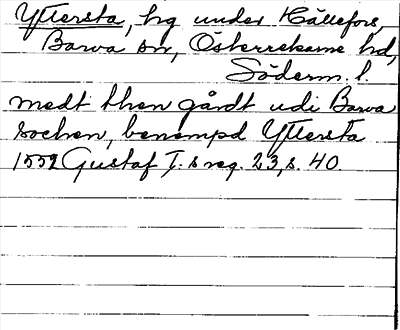 Yttersta, hg under Hällefors,
Barva sn, Österrekarne hd,
Söderm. l.
medt then gårdt udi Barva
sochen, benempd Yttersta
1552 Gustaf I:s reg. 23, s. 40.